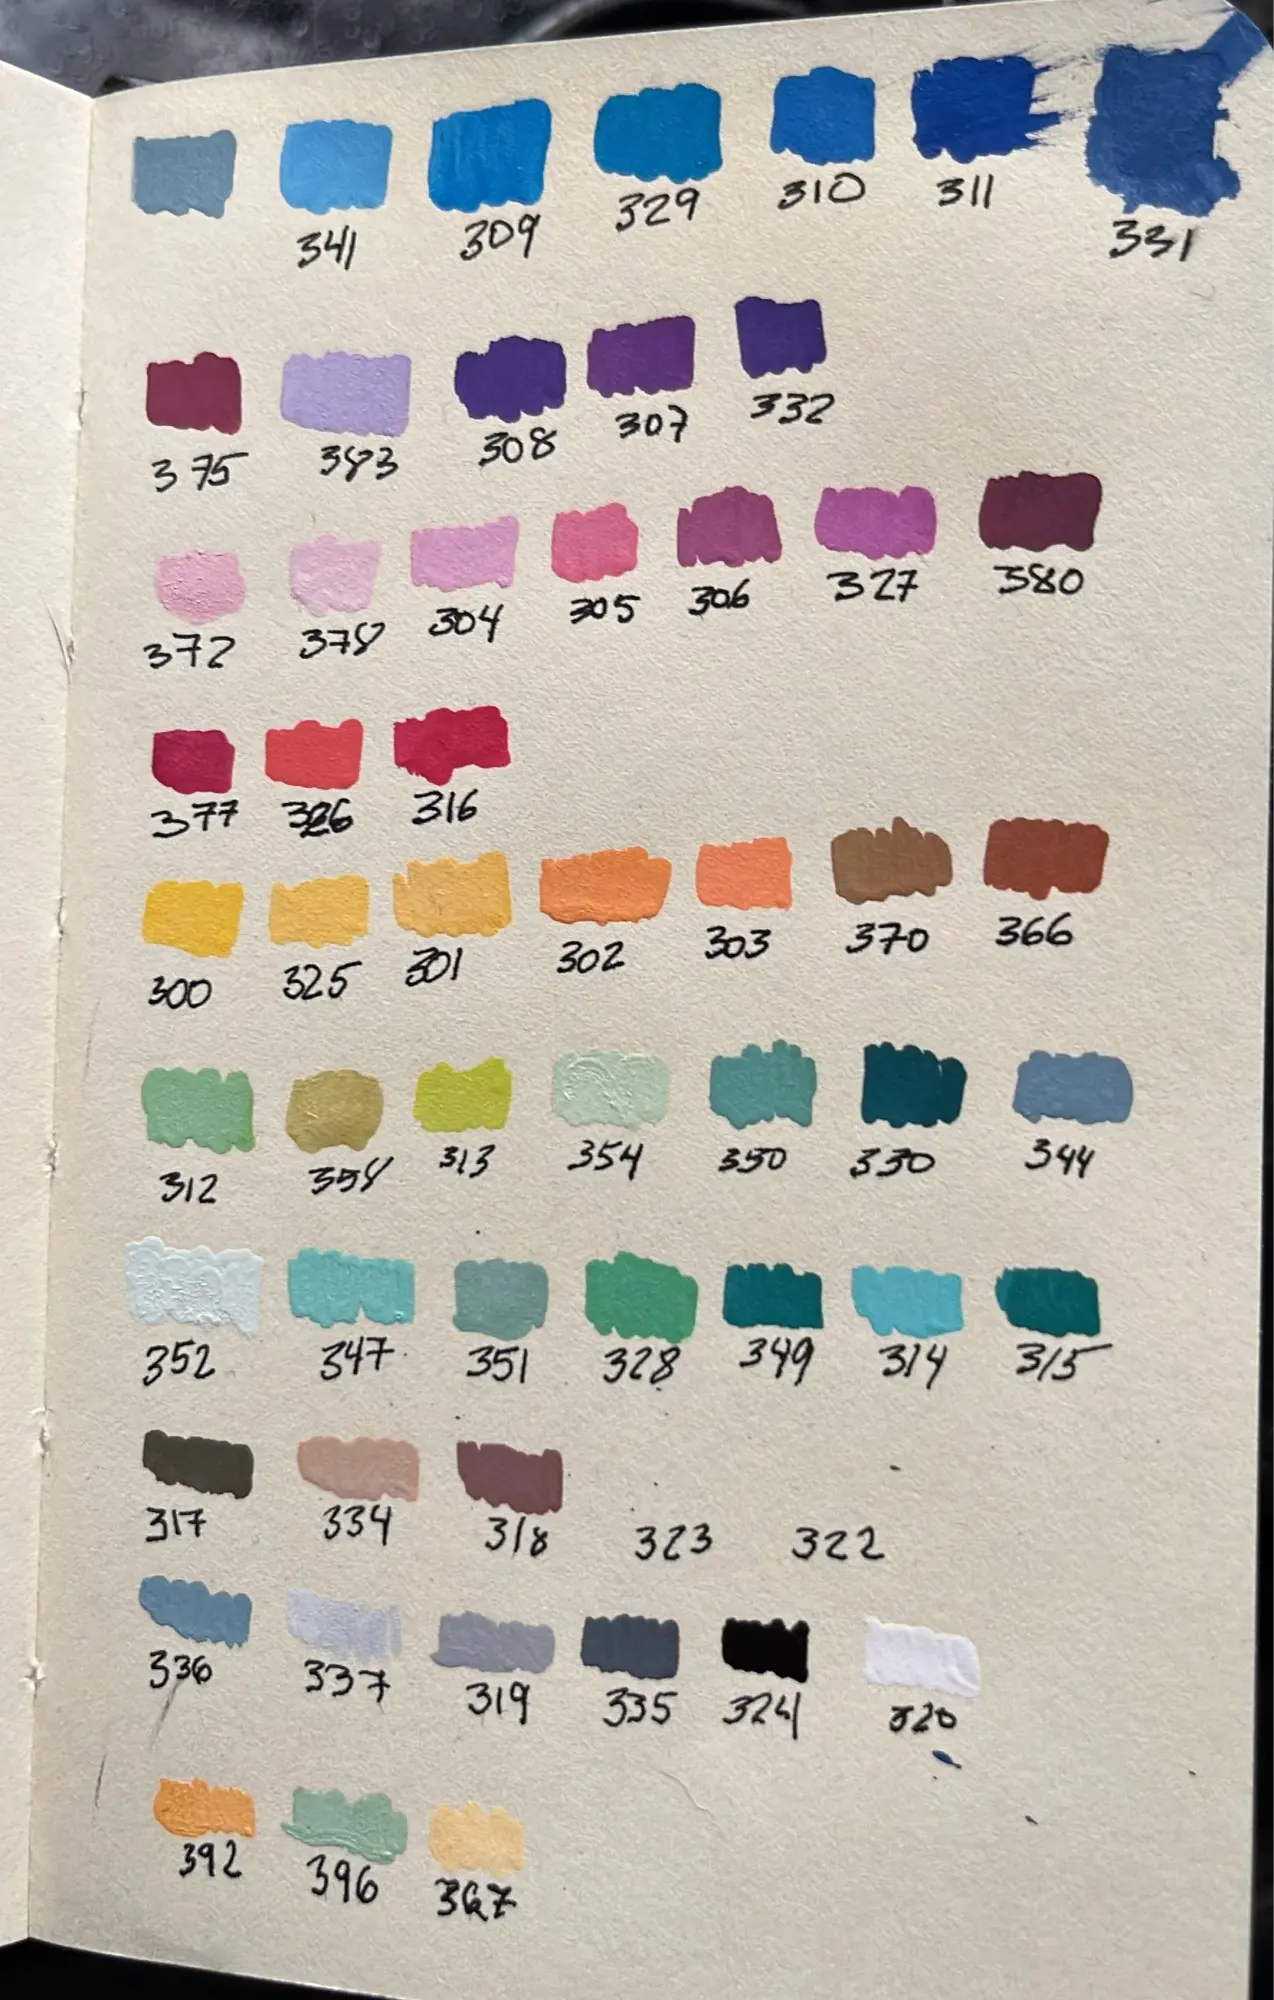 341 309 329 310 311 331
375 383 308 307 332
372 378 304 305 306 327 380
377 326 316
300 325 301 302 303 370 366
312 358 313 354 350 330 344
352 347 351 328 349 314 315
317 334 318 323 322
336 337 319 335 324 320
392 396 367